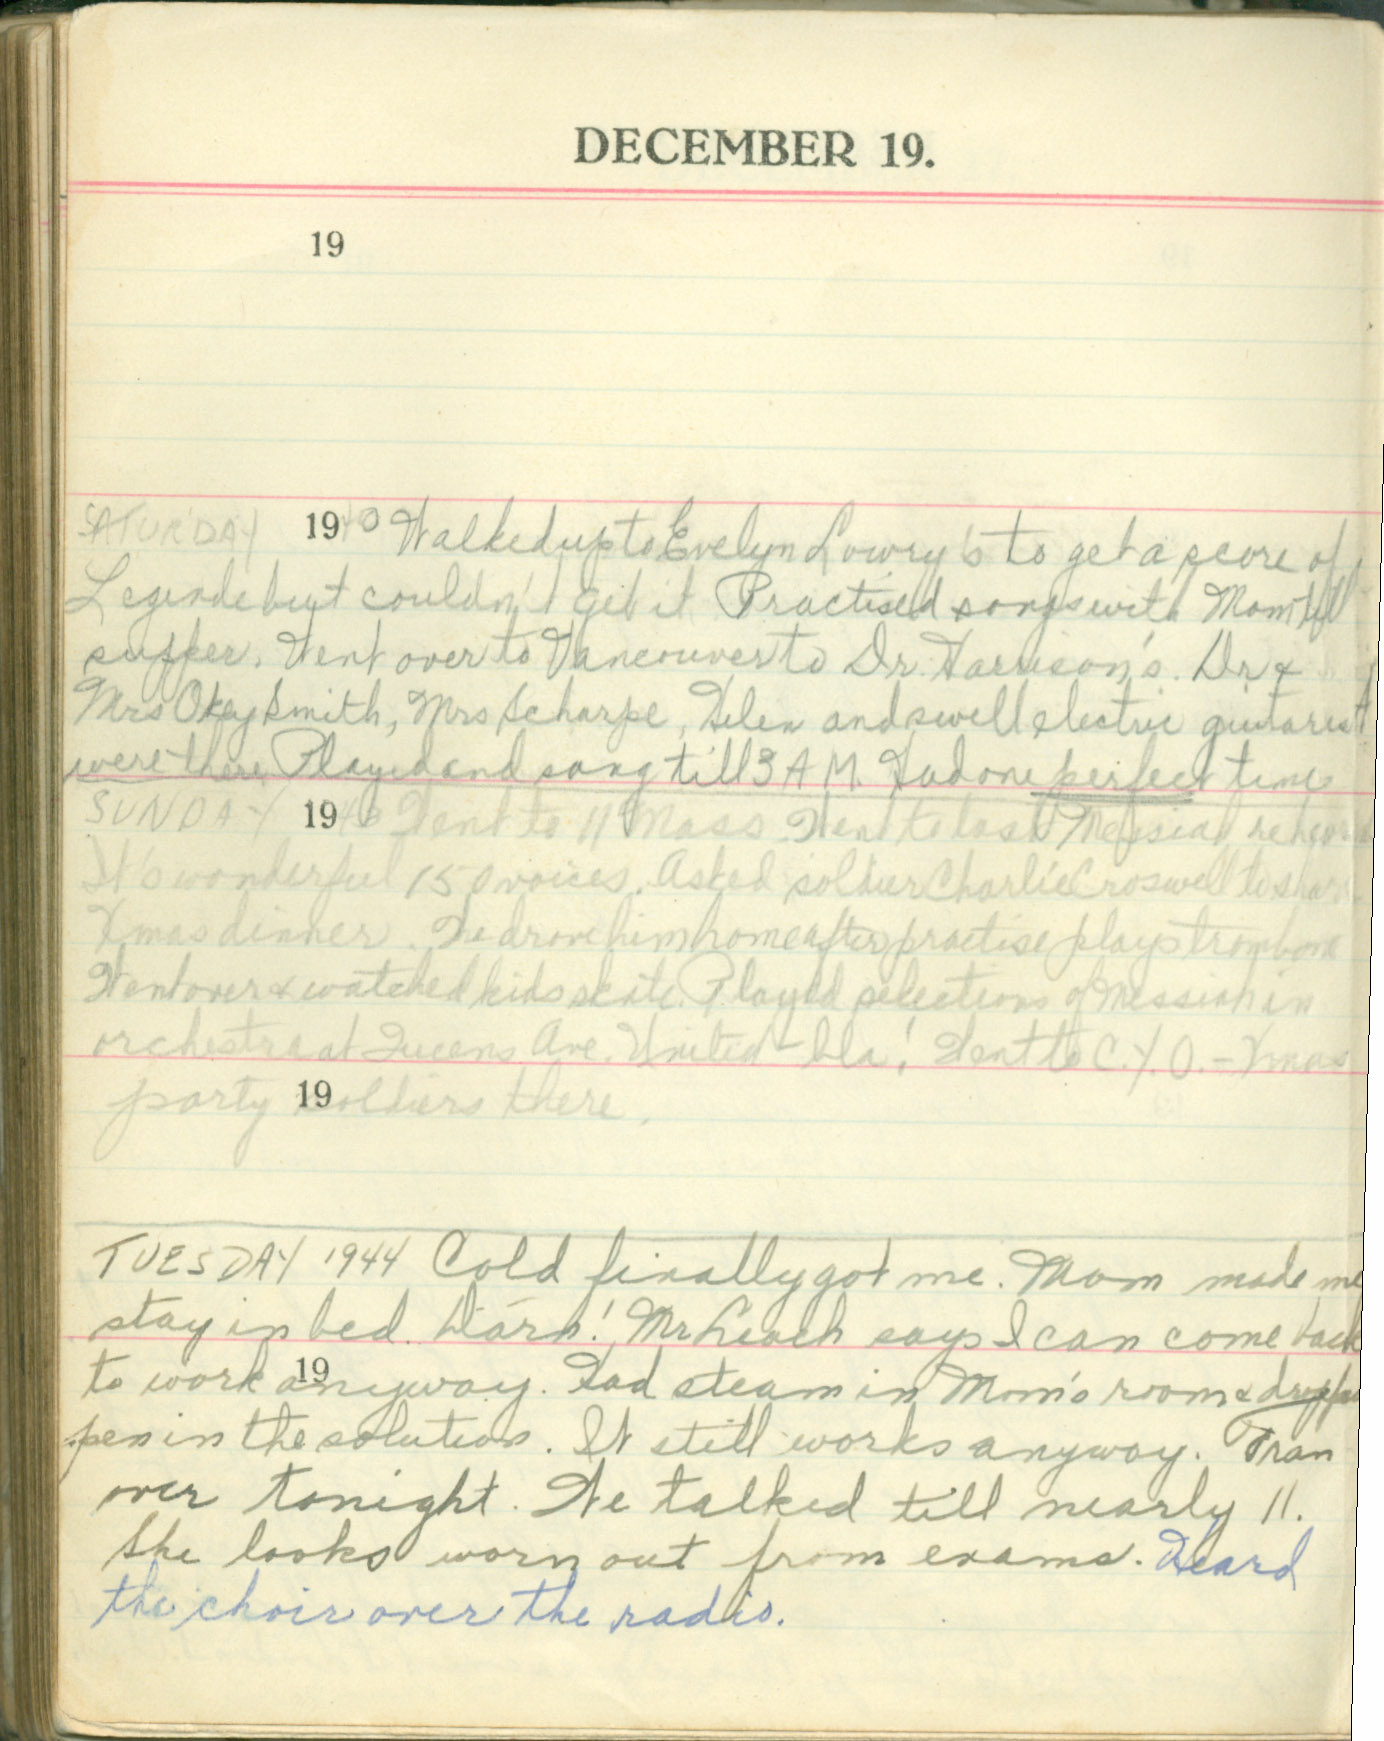 DECEMBER 19.
19
SATURDAY 19 Walked up to Evelyn Lowry's to get a score of
Legende but couldn't get it Practised songs with Mom till
supper. Went over to Vancouver to Dr. Harrison's. Dr &
Mrs Okey Smith, Mrs Scharpe, Helen and swell electric guitarist
were there Played and sang till 3 AM. Had one perfect time
SUNDAY 19 Went to 11 Mass Went to last Messiah
It's wonderful 150 voices. Asked soldier Charlie Croswell to share
Xmas dinner. We drove him home after practise plays trombone
Went over & watched kids skate. Played selections of Messiah in
orchestra at Queens Ave. United - bla! Went to C.Y.O. - Xmas
party 19 soldiers there.
TUESDAY 1944 Cold finally got me. Mom made me
stay in bed. Darn! Mr Leach says I can come back
to work 19 anyway. Had steam in Mom's room &
pen in the solution. It still works anyway. Fran
over tonight. We talked till nearly 11.
She looks worn out from exams. Heard
the choir over the radio.